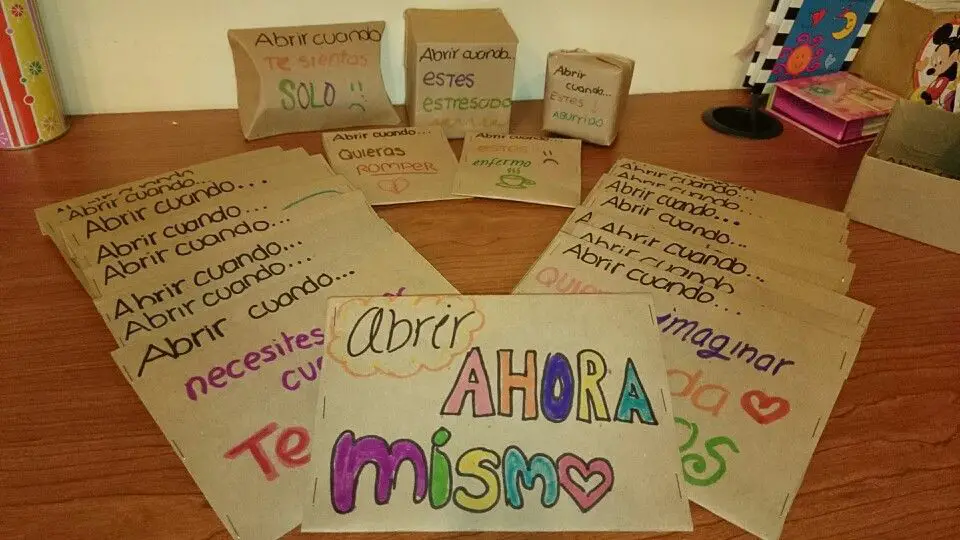 Abrir cuando
Te sientas
SOLO
Abrir cuando...
ESTES
ESTRESADO
Abrir
cuando...
ESTES
ABURRIDO
Abrir cuando...
Quieras
ROMPER
Abrir cuando...
estes
enfermo
Abrir cuando...
Abrir cuando...
Abrir cuando...
Abrir cuando...
Abrir cuando...
Abrir cuando...
Abrir cuando...
necesites
Te
Abrir cuando...
Abrir cuando...
Abrir cuando...
Abrir cuando...
Abrir cuando...
Abrir cuando...
Abrir cuando...
imaginar
abrir
AHORA
mismo